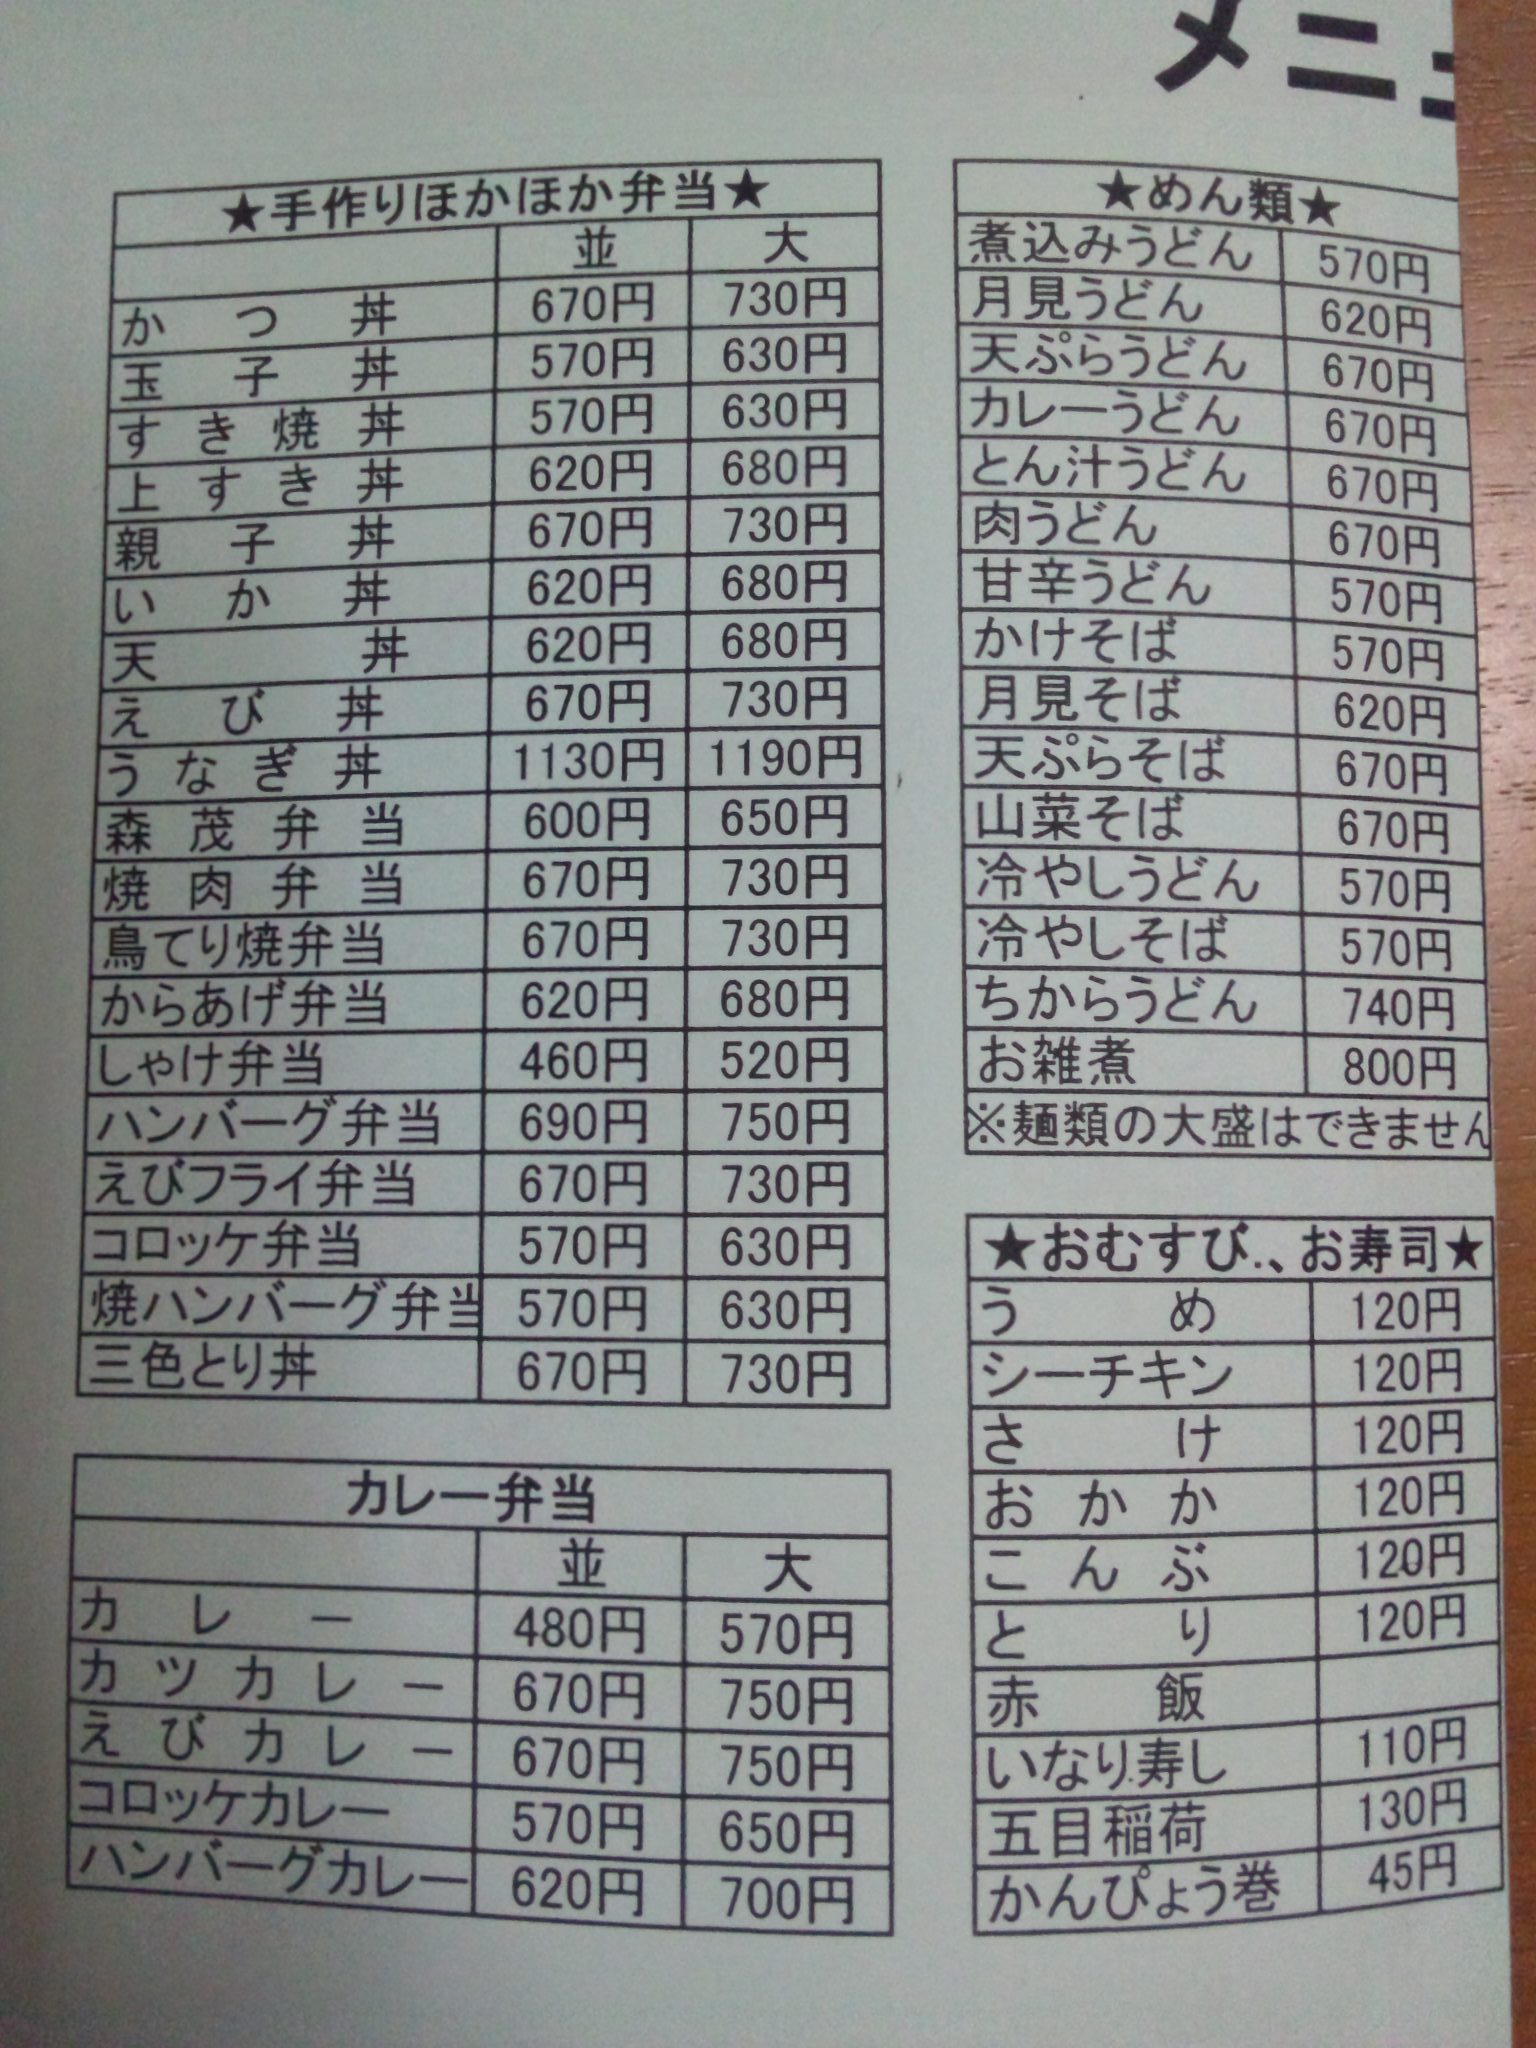 メニュ
★手作りほかほか弁当★
並 大
かつ丼 670円 730円
玉子丼 570円 630円
すき焼丼 570円 630円
上すき丼 620円 680円
親子丼 670円 730円
いか丼 620円 680円
天丼 620円 680円
えび丼 670円 730円
うなぎ丼 1130円 1190円
森茂弁当 600円 650円
焼肉弁当 670円 730円
鳥てり焼弁当 670円 730円
からあげ弁当 620円 680円
しゃけ弁当 460円 520円
ハンバーグ弁当 690円 750円
えびフライ弁当 670円 730円
コロッケ弁当 570円 630円
焼ハンバーグ弁当 570円 630円
三色とり丼 670円 730円
カレー弁当
並 大
カレー 480円 570円
カツカレー 670円 750円
えびカレー 670円 750円
コロッケカレー 570円 650円
ハンバーグカレー 620円 700円
★めん類★
煮込みうどん 570円
月見うどん 620円
天ぷらうどん 670円
カレーうどん 670円
とん汁うどん 670円
肉うどん 670円
甘辛うどん 570円
かけそば 570円
月見そば 620円
天ぷらそば 670円
山菜そば 670円
冷やしうどん 570円
冷やしそば 570円
ちからうどん 740円
お雑煮 800円
※麺類の大盛はできません
★おむすび.、お寿司★
うめ 120円
シーチキン 120円
さけ 120円
おかか 120円
こんぶ 120円
とり 120円
赤飯
いなり寿し 110円
五目稲荷 130円
かんぴょう巻 45円